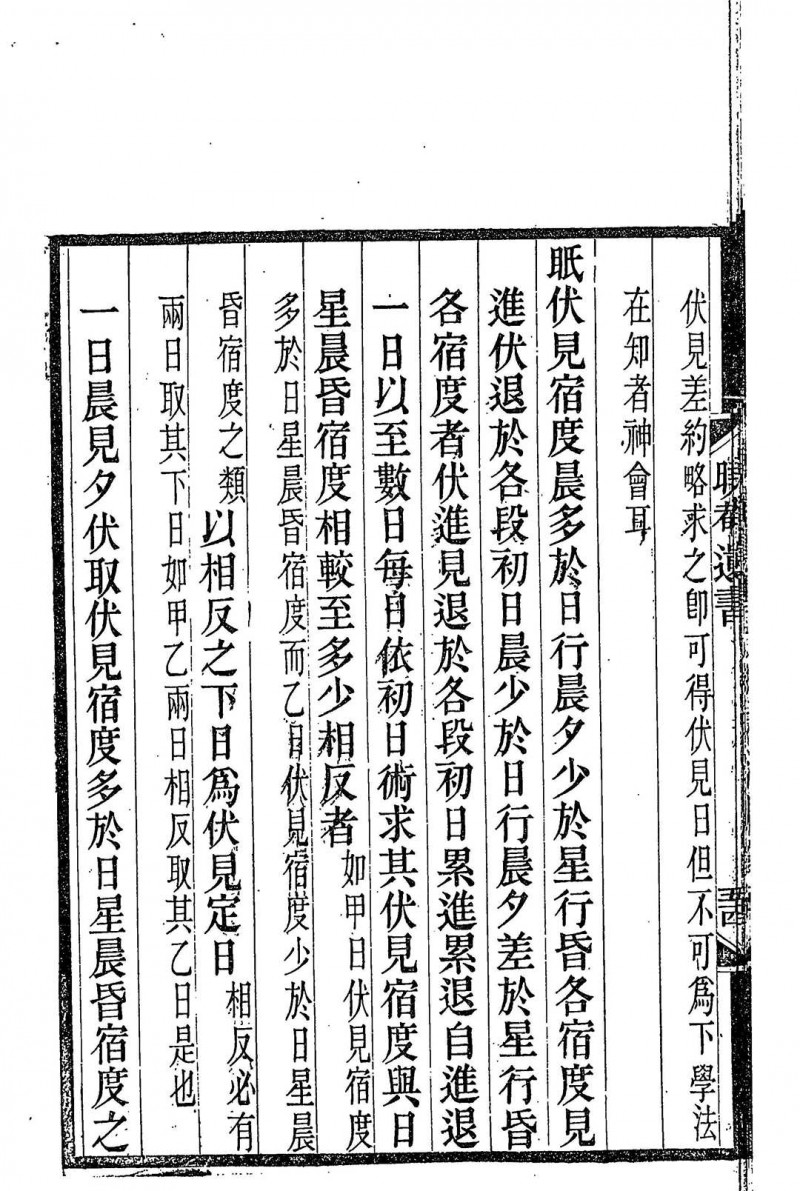 曉菴遺書
伏見差約略求之卽可得伏見日但不可爲下學法
在知者神會耳
眂伏見宿度晨多於日行晨夕少於星行昏各宿度見
進伏退於各段初日晨少於日行晨夕差於星行昏
各宿度者伏進見退於各段初日累進累退自進退
一日以至數日每日依初日術求其伏見宿度與日
星晨昏宿度相較至多少相反者如甲日伏見宿度
多於日星晨昏宿度而乙日伏見宿度少於日星晨
昏宿度之類以相反之下日爲伏見定日相反必有
兩日取其下日如甲乙兩日相反取其乙日是也
一日晨見夕伏取伏見宿度多於日星晨昏宿度之